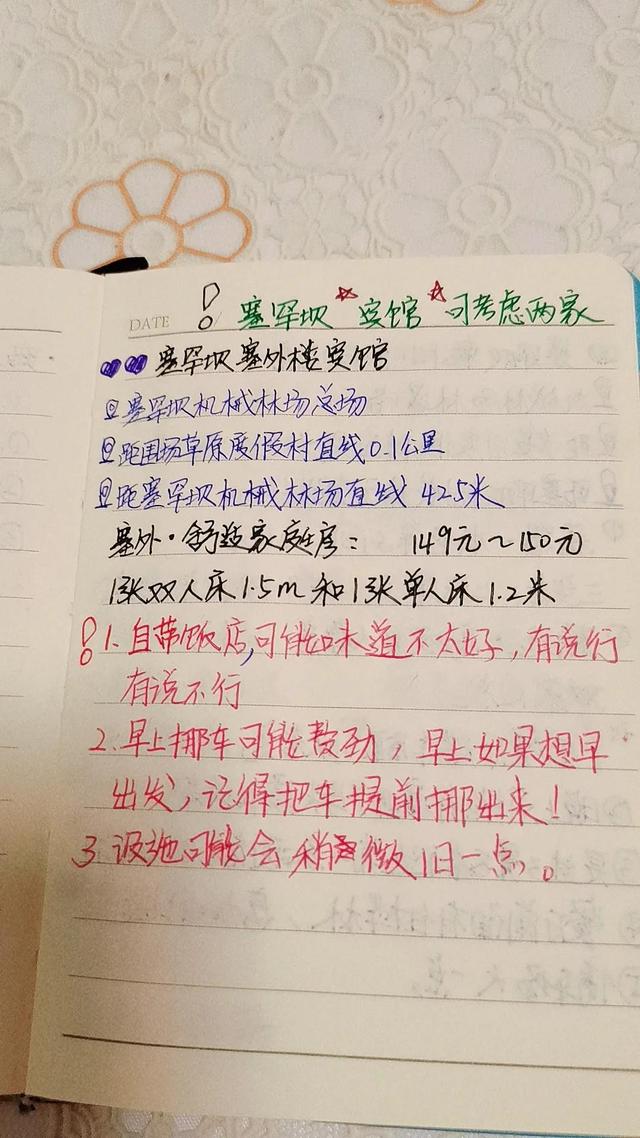 DATE ! 塞罕坝☆宾馆☆可考虑两家
塞罕坝塞外楼宾馆
塞罕坝机械林场总场
距围场草原度假村直线0.1公里
距塞罕坝机械林场直线 425米
塞外·舒适家庭房: 149元~150元
1张双人床1.5m和1张单人床1.2米
! 1.自带饭店,可能味道不太好,有说行
有说不行
2.早上挪车可能费劲,早上如果想早
出发,记得把车提前挪出来!
3.设施可能会稍微旧一点。